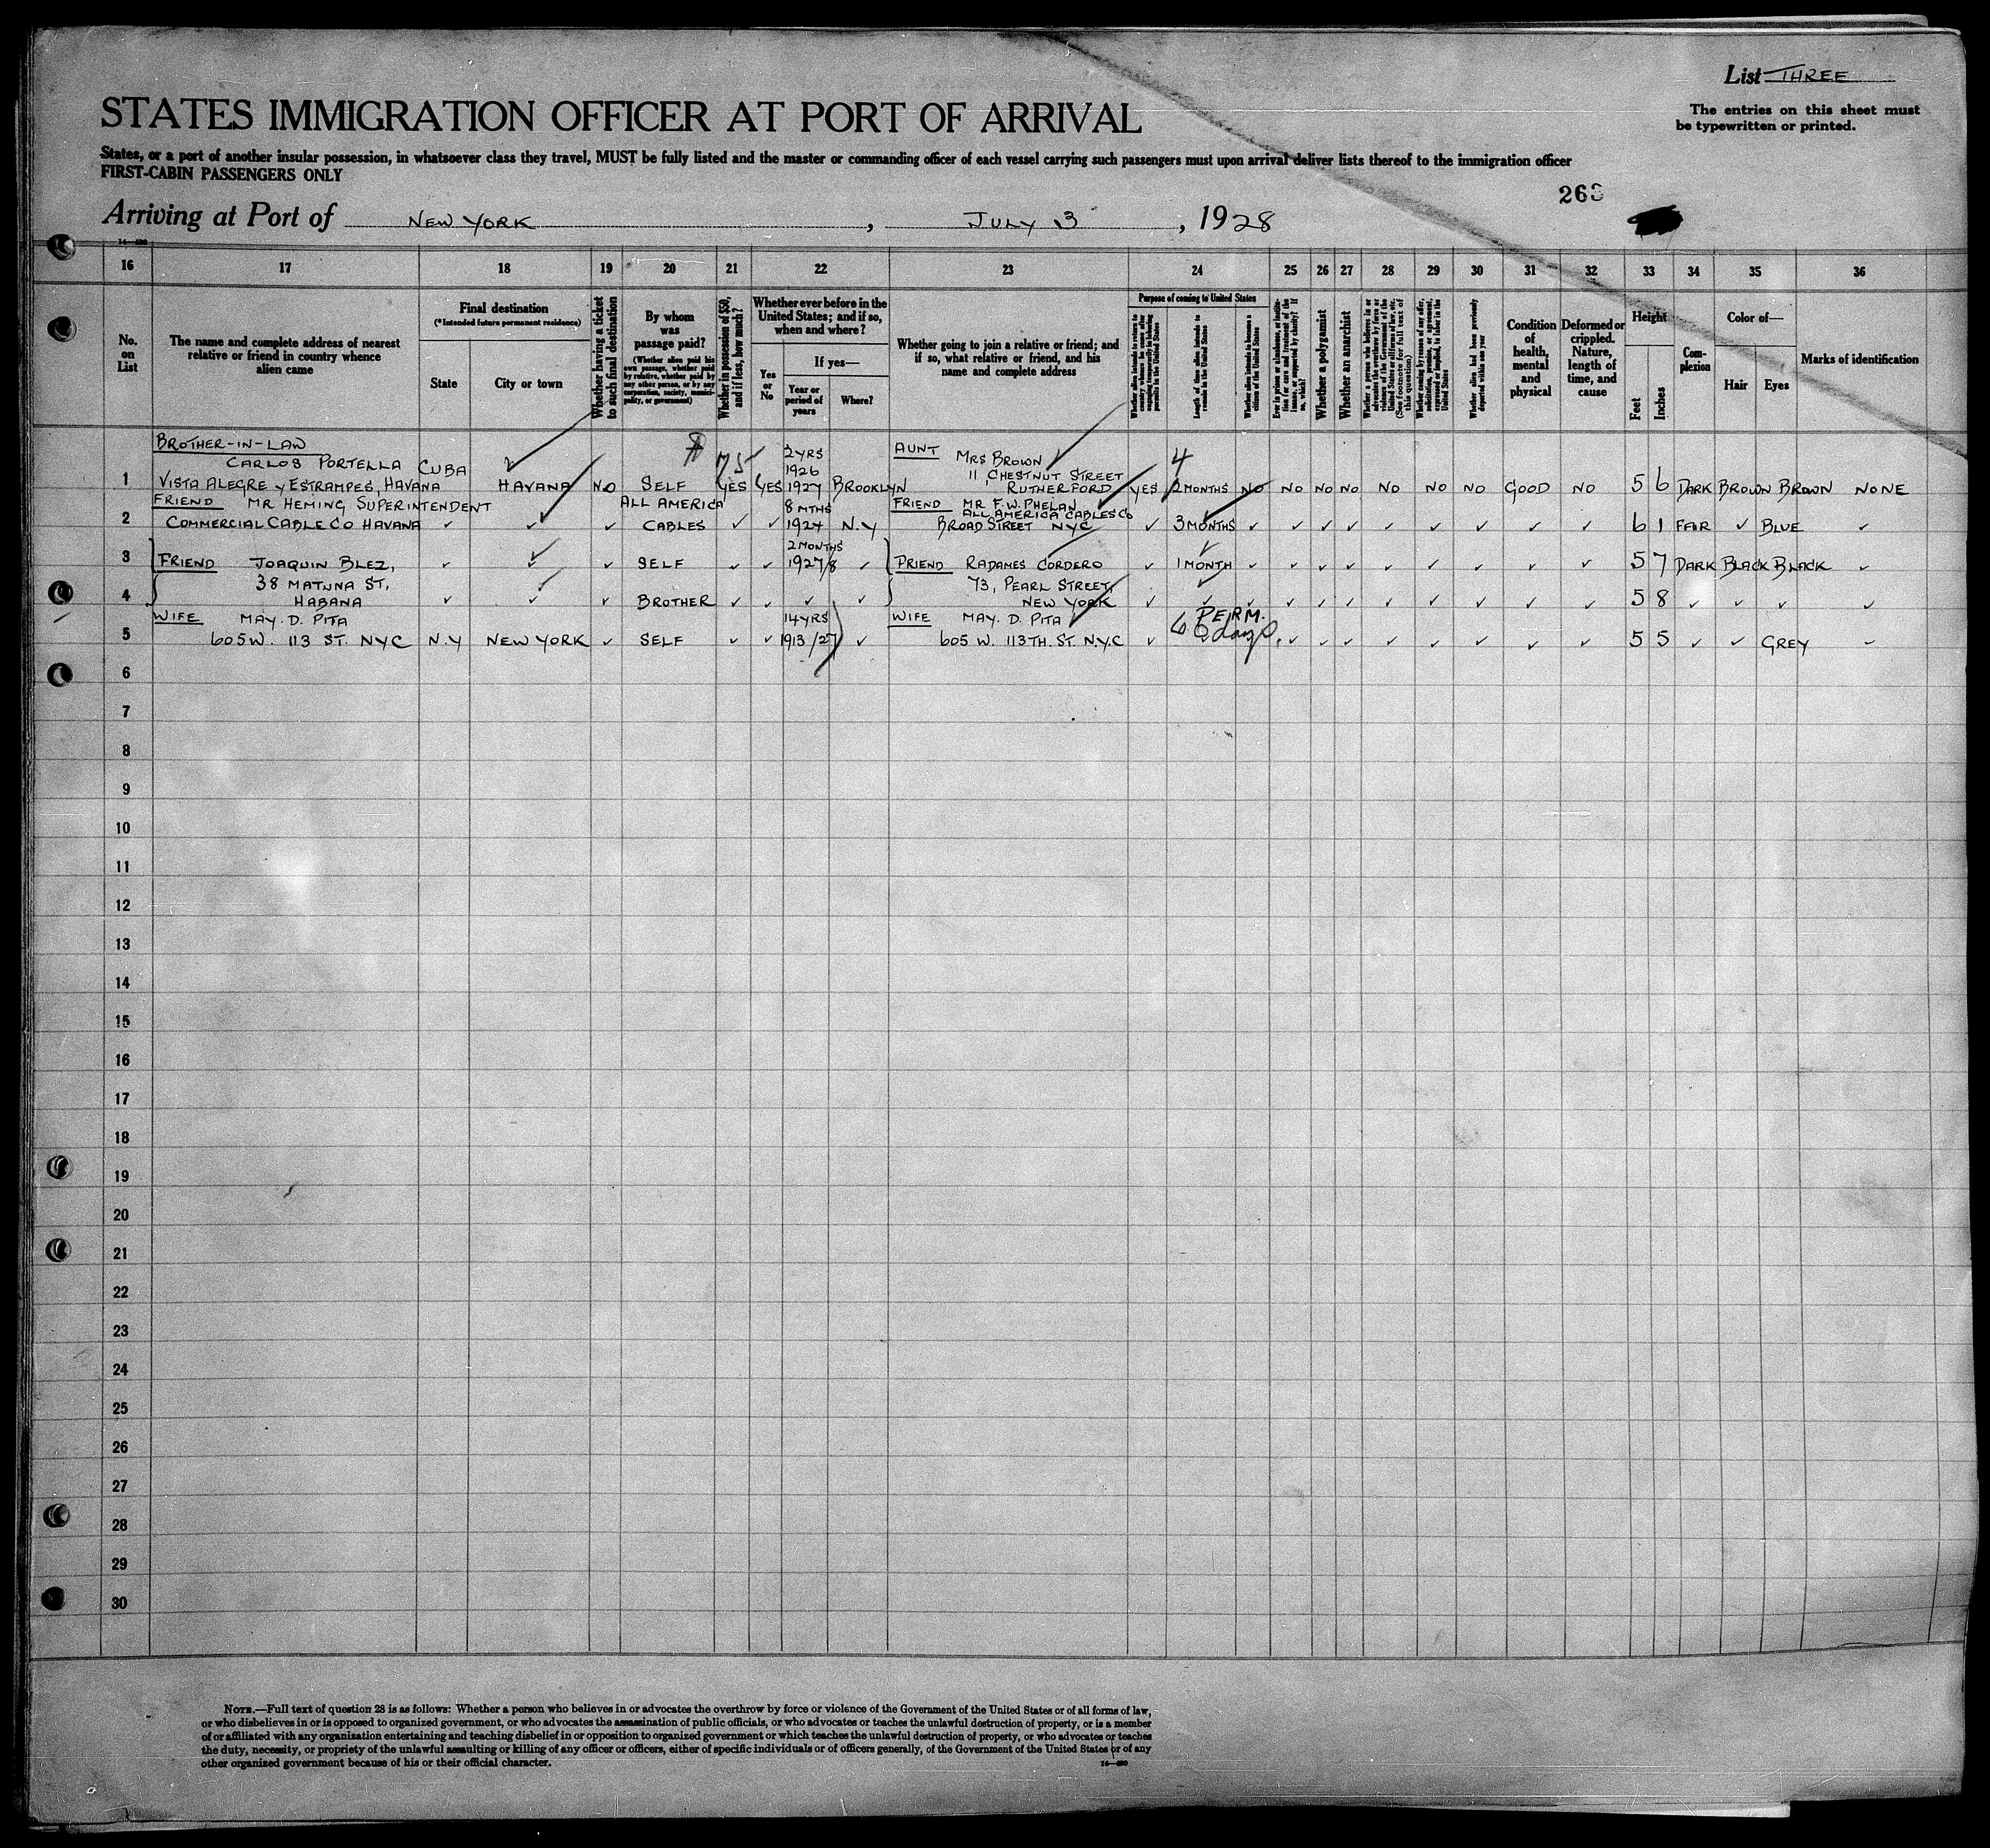 List THREE
STATES IMMIGRATION OFFICER AT PORT OF ARRIVAL
The entries on this sheet must
be typewritten or printed.
States, or a port of another insular possession, in whatsoever class they travel, MUST be fully listed and the master or commanding officer of each vessel carrying such passengers must upon arrival deliver lists thereof to the immigration officer
FIRST-CABIN PASSENGERS ONLY
Arriving at Port of NEW YORK, JULY 3, 1928
16 17 18 19 20 21 22 23 24 25 26 27 28 29 30 31 32 33 34 35 36
No. on List
The name and complete address of nearest relative or friend in country whence alien came
Final destination
(*Intended future permanent residence)
State
City or town
Whether having a ticket to such final destination
By whom was passage paid?
(Whether alien paid his own passage, whether paid by relative, whether paid by any other person, or by any corporation, society, municipality, or government)
Whether in possession of $50, and if less, how much?
Whether ever before in the United States; and if so, when and where?
Yes or No
If yes—
Year or period of years
Where?
Whether going to join a relative or friend; and if so, what relative or friend, and his name and complete address
Purpose of coming to United States
Whether alien intends to return to country whence he came after engaging temporarily in laboring pursuits in the United States
Length of time alien intends to remain in the United States
Whether alien intends to become a citizen of the United States
Ever in prison or almshouse, or institution for care and treatment of the insane, or supported by charity? If so, which?
Whether a polygamist
Whether an anarchist
Whether a person who believes in or advocates the overthrow by force or violence of the Government of the United States or all forms of law, etc. (See footnote for full text of this question)
Whether coming by reason of any offer, solicitation, promise, or agreement, expressed or implied, to labor in the United States
Whether alien had been previously deported within one year
Condition of health, mental and physical
Deformed or crippled. Nature, length of time, and cause
Height
Feet
Inches
Complexion
Color of—
Hair
Eyes
Marks of identification
BROTHER-IN-LAW
CARLOS PORTELLA CUBA 75 2 YRS 1926 AUNT MRS BROWN 4
11, CHESTNUT STREET
1 VISTA ALEGRE Y ESTRAMPES, HAVANA HAVANA NO SELF YES YES 1927 BROOKLYN RUTHERFORD YES 2 MONTHS NO NO NO NO NO NO NO GOOD NO 5 6 DARK BROWN BROWN NONE
FRIEND MR HEMING SUPERINTENDENT ALL AMERICA 8 MTHS FRIEND MR F.W. PHELAN
ALL AMERICA CABLES Co
2 COMMERCIAL CABLE CO HAVANA ✓ ✓ ✓ CABLES ✓ ✓ 1924 N.Y BROAD STREET NYC ✓ 3 MONTHS ✓ ✓ ✓ ✓ ✓ ✓ ✓ ✓ ✓ 6 1 FAIR ✓ BLUE ✓
2 MONTHS
3 FRIEND JOAQUIN BLEZ, ✓ ✓ ✓ SELF ✓ ✓ 1927/8 ✓ FRIEND RADAMES CORDERO ✓ 1 MONTH ✓ ✓ ✓ ✓ ✓ ✓ ✓ ✓ ✓ 5 7 DARK BLACK BLACK ✓
38 MATUNA ST, 73, PEARL STREET,
4 HABANA ✓ ✓ ✓ BROTHER ✓ ✓ ✓ ✓ NEW YORK ✓ ✓ ✓ ✓ ✓ ✓ ✓ ✓ ✓ ✓ ✓ 5 8 ✓ ✓ ✓ ✓
WIFE MAY. D. PITA 14 YRS WIFE MAY. D. PITA PERM.
60 days
5 605 W. 113 ST. NYC N.Y NEW YORK ✓ SELF ✓ ✓ 1913/27 ✓ 605 W. 113TH. ST. N.Y.C ✓ ✓ ✓ ✓ ✓ ✓ ✓ ✓ ✓ 5 5 ✓ ✓ GREY ✓
6
7
8
9
10
11
12
13
14
15
16
17
18
19
20
21
22
23
24
25
26
27
28
29
30
NOTE.—Full text of question 28 is as follows: Whether a person who believes in or advocates the overthrow by force or violence of the Government of the United States or of all forms of law,
or who disbelieves in or is opposed to organized government, or who advocates the assassination of public officials, or who advocates or teaches the unlawful destruction of property, or is a member
of or affiliated with any organization entertaining and teaching disbelief in or opposition to organized government or which teaches the unlawful destruction of property, or who advocates or teaches
the duty, necessity, or propriety of the unlawful assaulting or killing of any officer or officers, either of specific individuals or of officers generally, of the Government of the United States or of any
other organized government because of his or their official character.